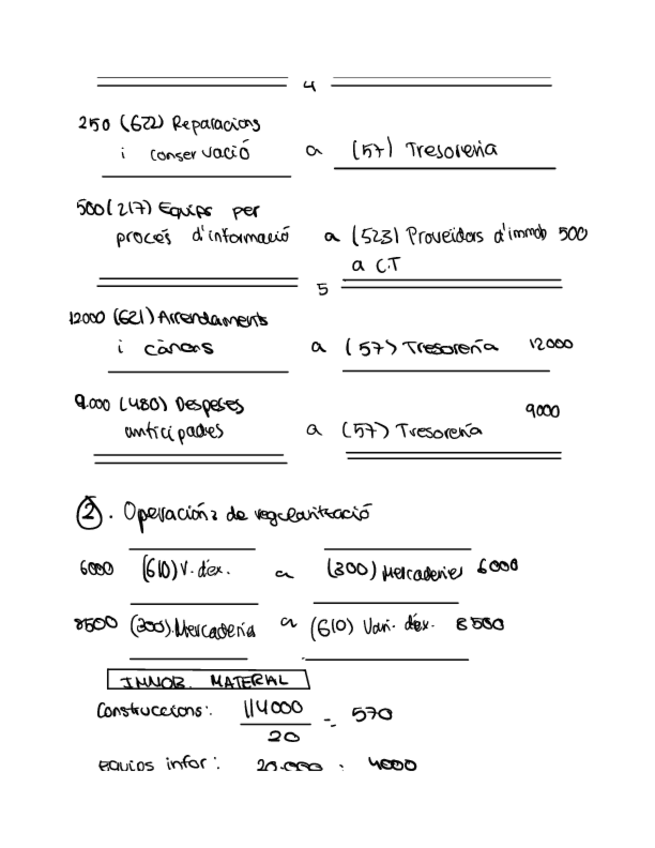 4
250 (622) Reparacions
i conservació a (57) Tresoreria
500 (217) Equips per
procés d'informació a (523) Proveidors d'immob 500
a C.T
5
12000 (621) Arrendaments
i cànons a (57) Tresoreria 12000
9.000 (480) Despeses 9000
anticipades a (57) Tresoreria
2. Operacións de regularització
6000 (610) V. d'ex. a (300) Mercaderies 6000
8500 (300). Mercaderia a (610) Vari. d'ex. 8500
IMMOB. MATERIAL
Construccions: 114000 = 570
20
equips infor: 20.000 : 4000